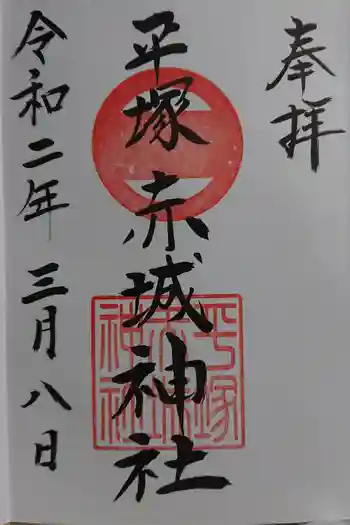 奉拝
平塚赤城神社
令和二年三月八日